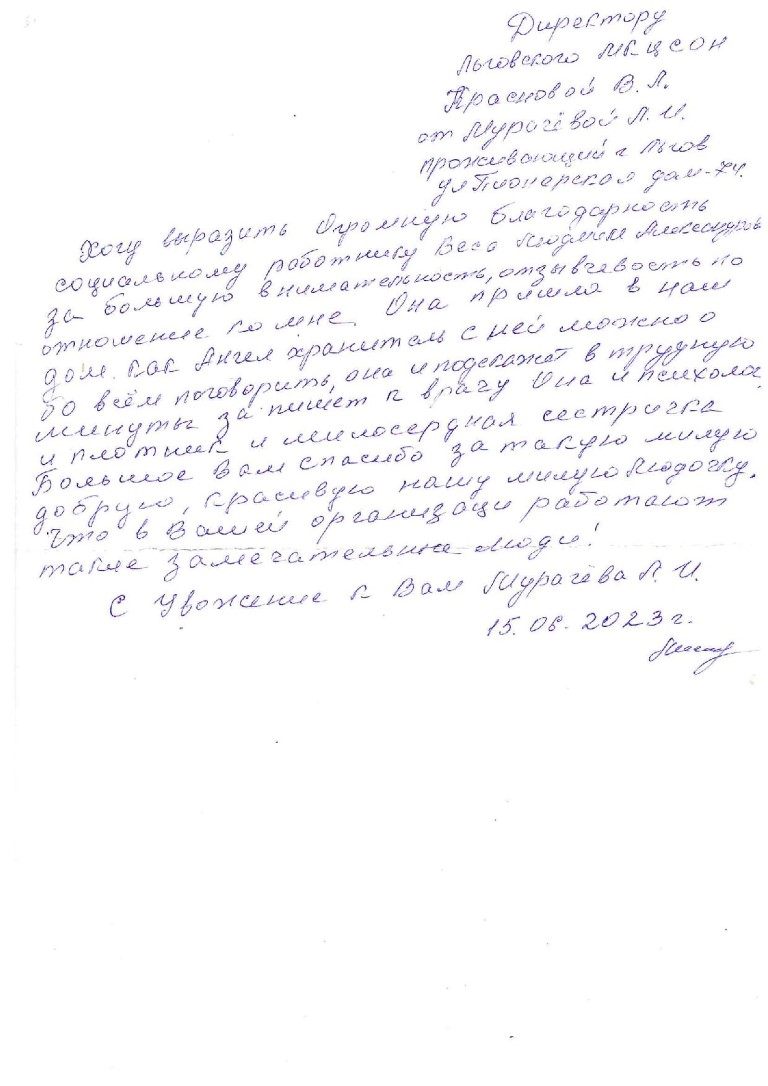 Директору
Льговского МКЦСОН
Красновой В.Л.
от Мурачёвой Л.И.
проживающий г Льгов
ул Пионерская дом-74.
Хочу выразить Огромную благодарность
социальному работнику Весо Людмиле Александров
за большую внимательность, отзывчевость по
отношение ко мне. Она пришла в наш
дом. как Ангел хранитель с ней можно о
бо всём поговорить, она и подскажет в трудную
минуты запишет к врачу Она и психолог
и плотник и милосердная сестричка
Большое Вам спасибо за такую милую
добрую, красивую нашу милую Людочку.
Что в Вашей организаци работают
такие замечательные люди!
С Уважение к Вам Мурачёва Л.И.
15.06.2023 г.